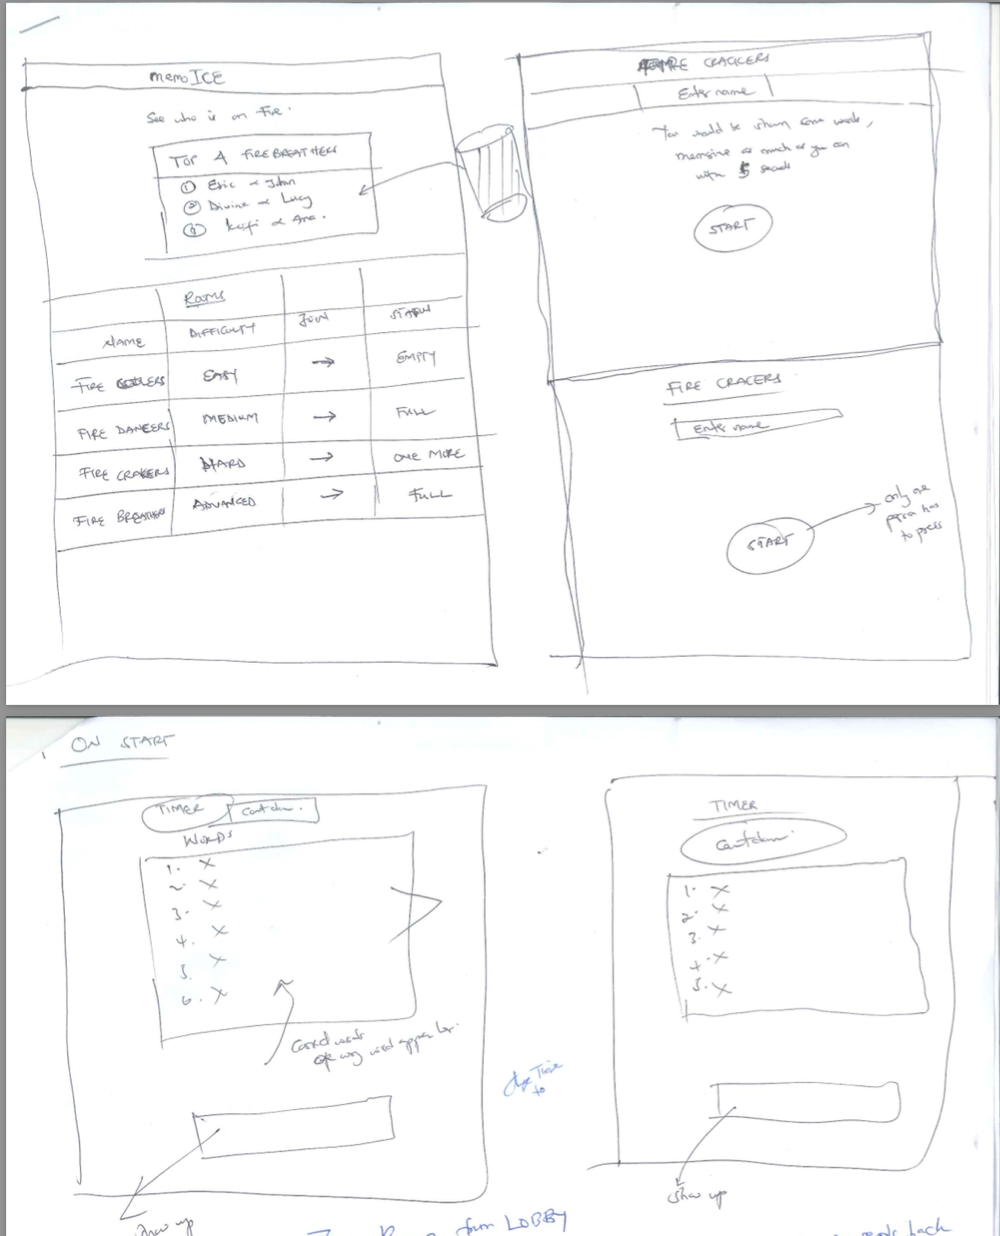 memoICE
See who is on Fire.
TOP 4 FIREBREATHERS
① Eric & John
② Divine & Lucy
③ & Ana.
ROOMS
NAME DIFFICULTY JOIN STATUS
FIRE EASY → EMPTY
FIRE DANCERS MEDIUM → FULL
FIRE CRAKERS HARD → ONE MORE
FIRE BREATHERS ADVANCED → FULL
FIRE CRACKERS
Enter name
You would be shown some words,
memorise as much as you can
within 5 seconds
START
FIRE CRACERS
Enter name
START
only one
person has
to press
ON START
TIMER Countdown.
WORDS
1. X
2. X
3. X
4. X
5. X
6. X
words
word appear here.
show up
Time
to
TIMER
Countdown.
1. X
2. X
3. X
4. X
5. X
show up
from LOBBY
back